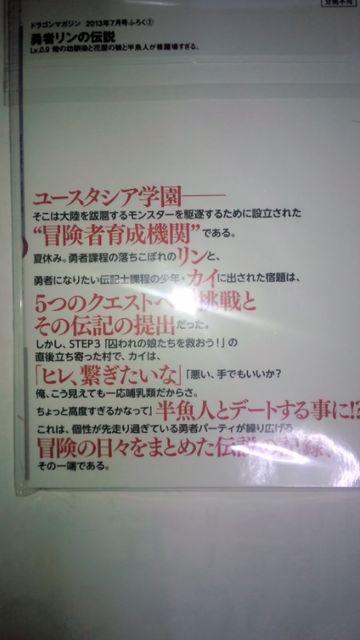 分売不可
ドラゴンマガジン 2013年7月号ふろく②
勇者リンの伝説
Lv.0.9 俺の幼馴染と花屋の娘と半魚人が修羅場すぎる。
ユースタシア学園――
そこは大陸を跋扈するモンスターを駆逐するために設立された
“冒険者育成機関”である。
夏休み。勇者課程の落ちこぼれのリンと、
勇者になりたい伝記士課程の少年・カイに出された宿題は、
5つのクエストへ 挑戦と
その伝記の提出だった。
しかし、STEP3「囚われの娘たちを救おう!」の
直後立ち寄った村で、カイは、
「ヒレ、繋ぎたいな」「悪い、手でもいいか?
俺、こう見えても一応哺乳類だからさ。
ちょっと高度すぎるかなって」半魚人とデートする事に!?
これは、個性が先走り過ぎている勇者パーティが繰り広げる
冒険の日々をまとめた伝説の記録、
その一端である。